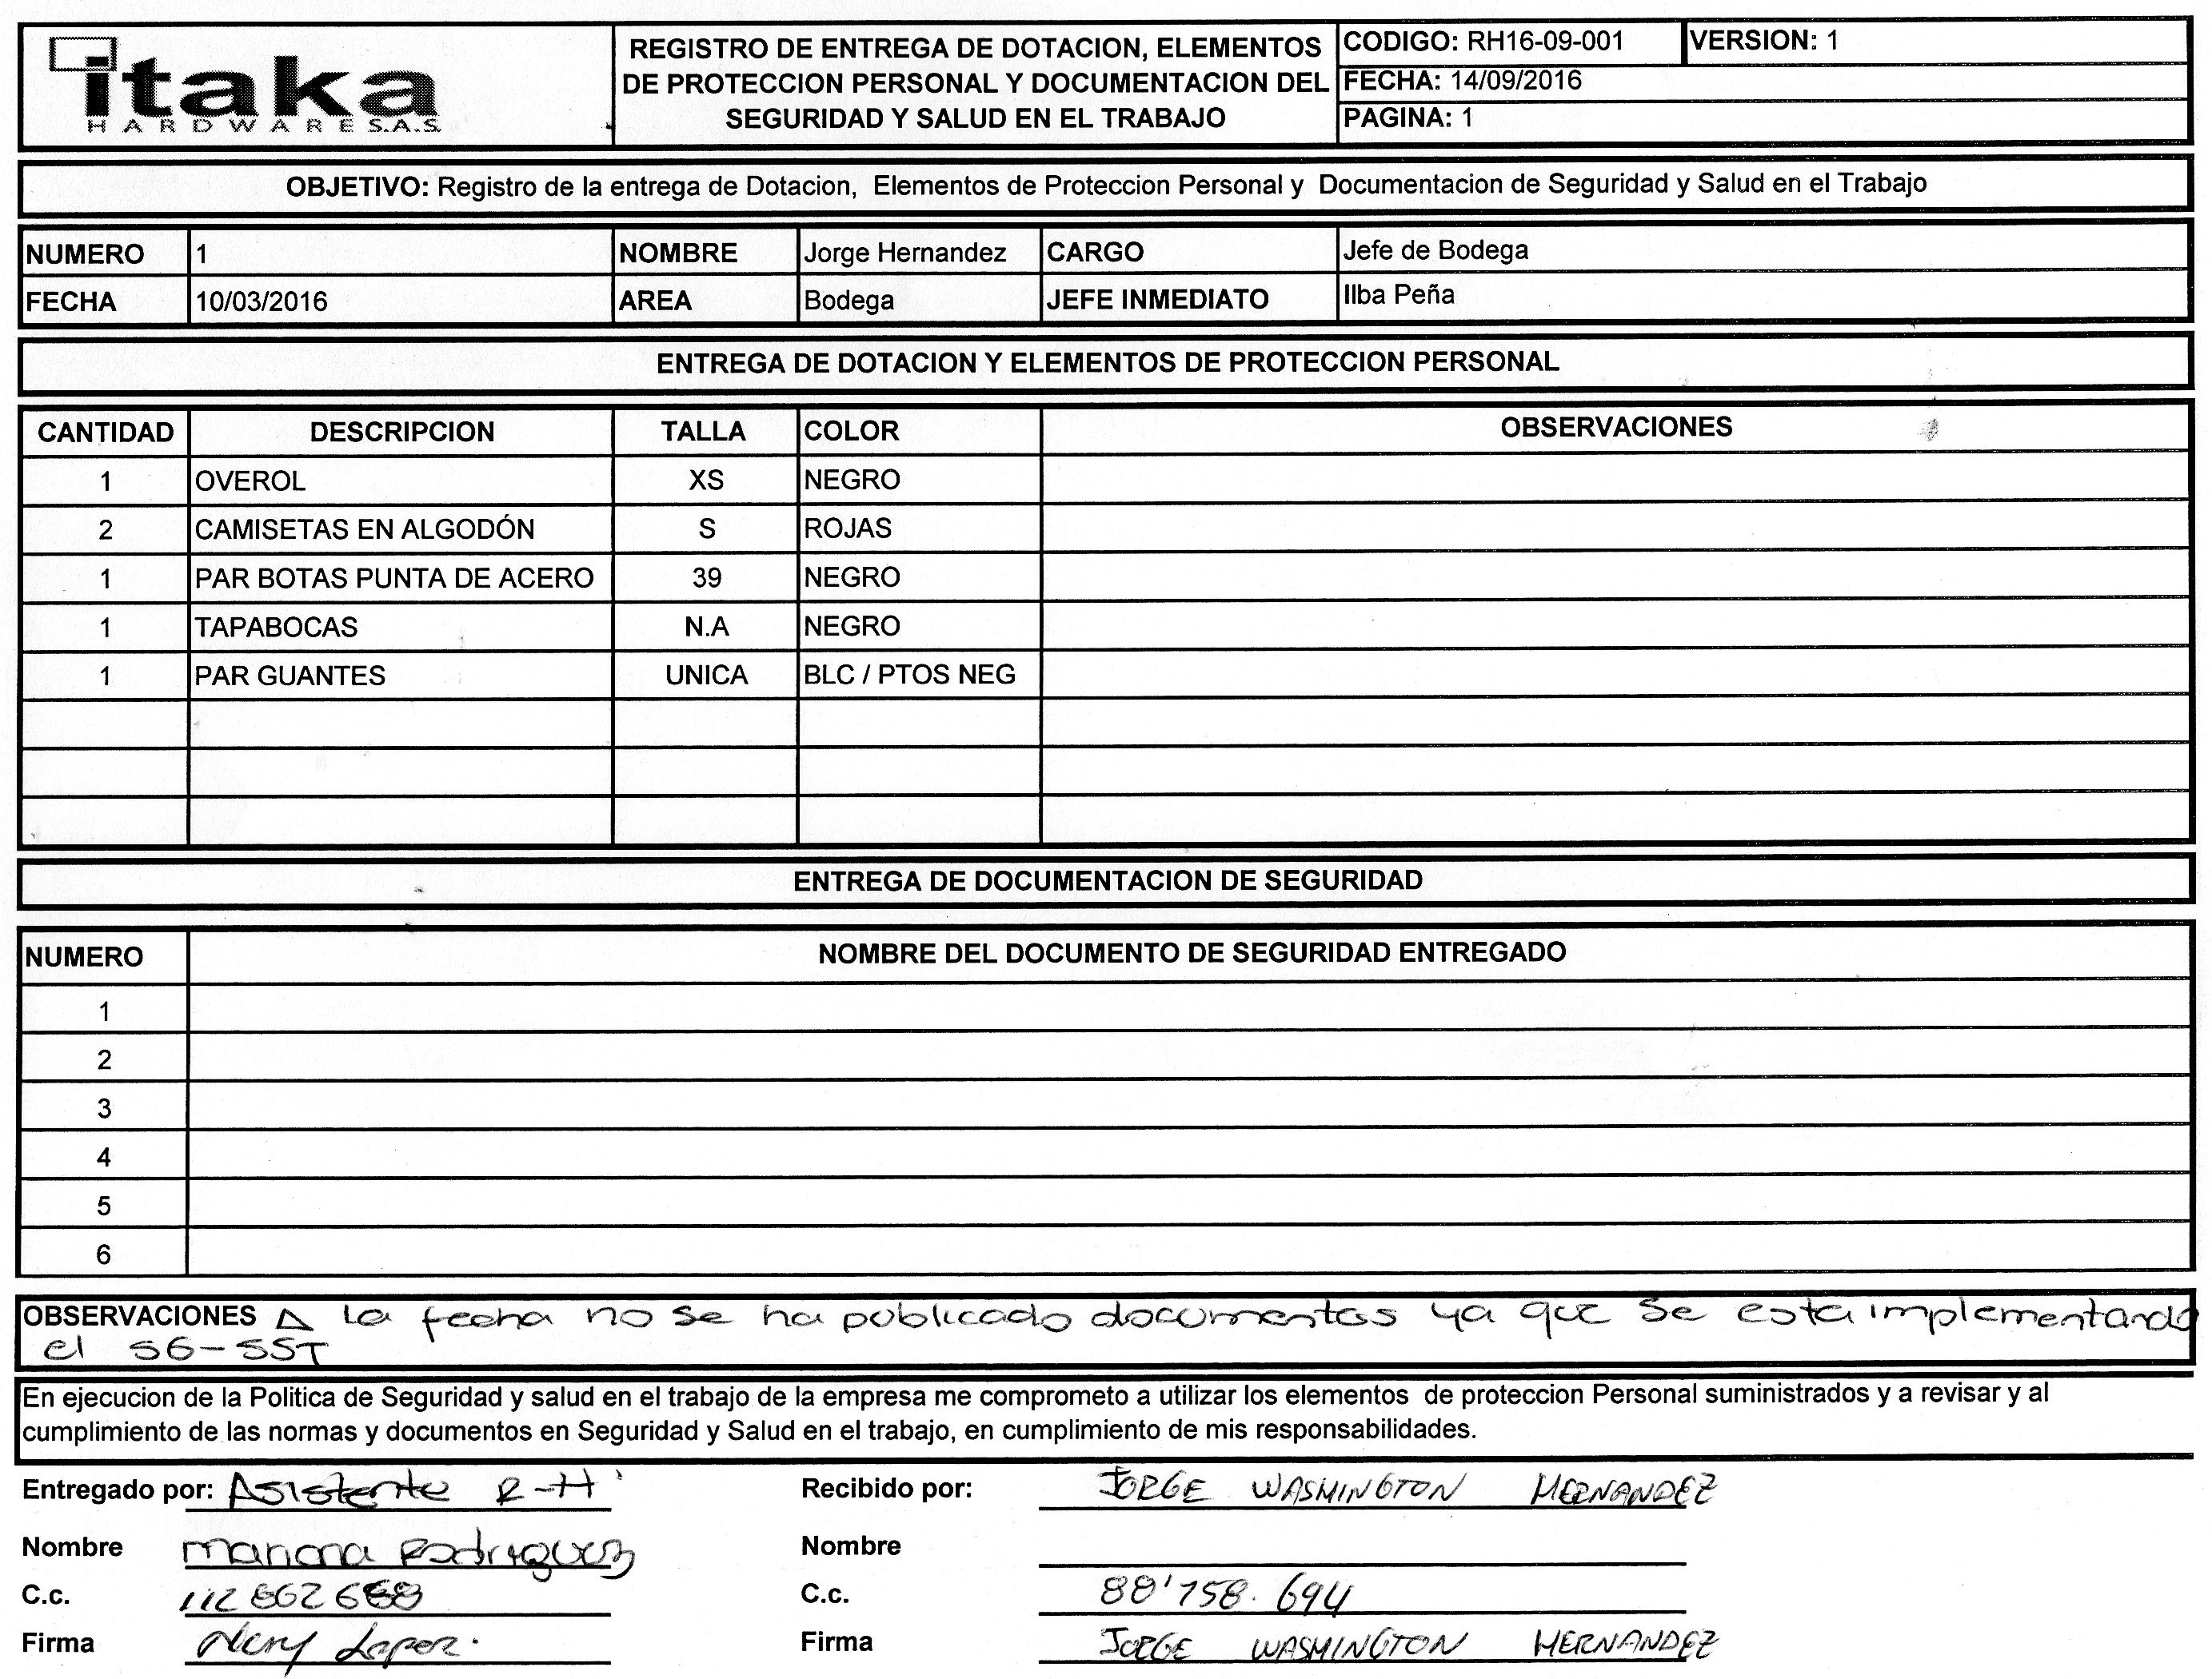 itaka
HARDWARE S.A.S.
REGISTRO DE ENTREGA DE DOTACION, ELEMENTOS
DE PROTECCION PERSONAL Y DOCUMENTACION DEL
SEGURIDAD Y SALUD EN EL TRABAJO
CODIGO: RH16-09-001 VERSION: 1
FECHA: 14/09/2016
PAGINA: 1
OBJETIVO: Registro de la entrega de Dotacion, Elementos de Proteccion Personal y Documentacion de Seguridad y Salud en el Trabajo
NUMERO 1 NOMBRE Jorge Hernandez CARGO Jefe de Bodega
FECHA 10/03/2016 AREA Bodega JEFE INMEDIATO Ilba Peña
ENTREGA DE DOTACION Y ELEMENTOS DE PROTECCION PERSONAL
CANTIDAD DESCRIPCION TALLA COLOR OBSERVACIONES
1 OVEROL XS NEGRO
2 CAMISETAS EN ALGODÓN S ROJAS
1 PAR BOTAS PUNTA DE ACERO 39 NEGRO
1 TAPABOCAS N.A NEGRO
1 PAR GUANTES UNICA BLC / PTOS NEG
ENTREGA DE DOCUMENTACION DE SEGURIDAD
NUMERO NOMBRE DEL DOCUMENTO DE SEGURIDAD ENTREGADO
1
2
3
4
5
6
OBSERVACIONES A la fecha no se ha publicado documentos ya que se esta implementando
el SG-SST
En ejecucion de la Politica de Seguridad y salud en el trabajo de la empresa me comprometo a utilizar los elementos de proteccion Personal suministrados y a revisar y al
cumplimiento de las normas y documentos en Seguridad y Salud en el trabajo, en cumplimiento de mis responsabilidades.
Entregado por: Asistente R-H Recibido por: JORGE WASHINGTON HERNANDEZ
Nombre Rodriguez Nombre
C.c. C.c. 88'758.694
Firma Lopez. Firma JORGE WASHINGTON HERNANDEZ